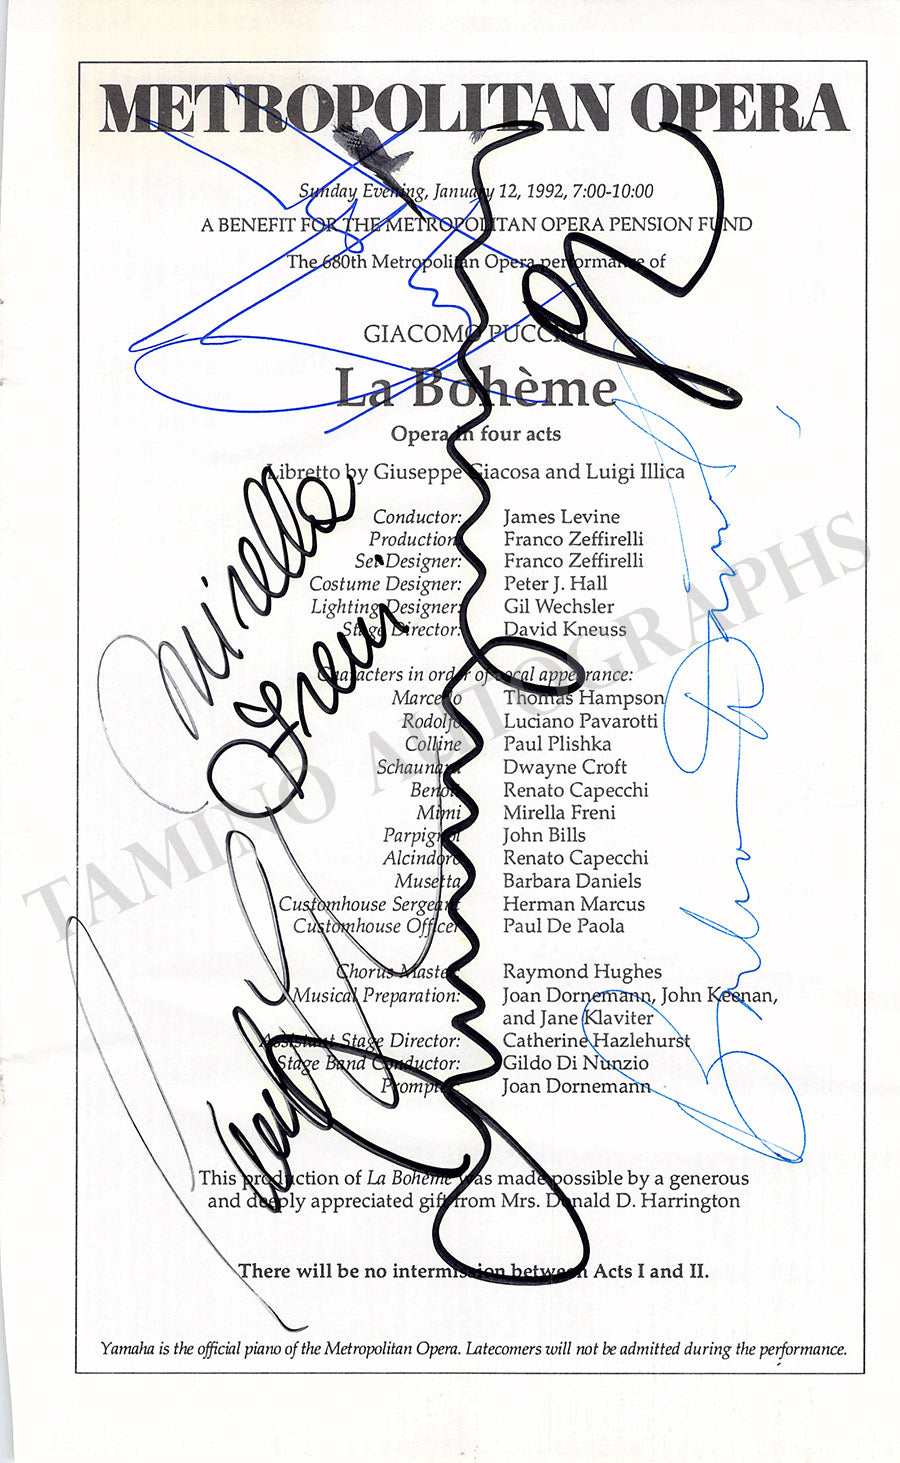 METROPOLITAN OPERA
Sunday Evening, January 12, 1992, 7:00-10:00
A BENEFIT FOR THE METROPOLITAN OPERA PENSION FUND
The 680th Metropolitan Opera performance of
GIACOMO PUCCINI
La Bohème
Opera in four acts
Libretto by Giuseppe Giacosa and Luigi Illica
Conductor: James Levine
Production: Franco Zeffirelli
Set Designer: Franco Zeffirelli
Costume Designer: Peter J. Hall
Lighting Designer: Gil Wechsler
Stage Director: David Kneuss
Characters in order of vocal appearance:
Marcello Thomas Hampson
Rodolfo Luciano Pavarotti
Colline Paul Plishka
Schaunard Dwayne Croft
Benoit Renato Capecchi
Mimi Mirella Freni
Parpignol John Bills
Alcindoro Renato Capecchi
Musetta Barbara Daniels
Customhouse Sergeant Herman Marcus
Customhouse Officer Paul De Paola
Chorus Master: Raymond Hughes
Musical Preparation: Joan Dornemann, John Keenan,
and Jane Klaviter
Assistant Stage Director: Catherine Hazlehurst
Stage Band Conductor: Gildo Di Nunzio
Prompter: Joan Dornemann
This production of La Bohème was made possible by a generous
and deeply appreciated gift from Mrs. Donald D. Harrington
There will be no intermission between Acts I and II.
Yamaha is the official piano of the Metropolitan Opera. Latecomers will not be admitted during the performance.
Mirella
Freni
Barbara Daniels
TAMINO AUTOGRAPHS